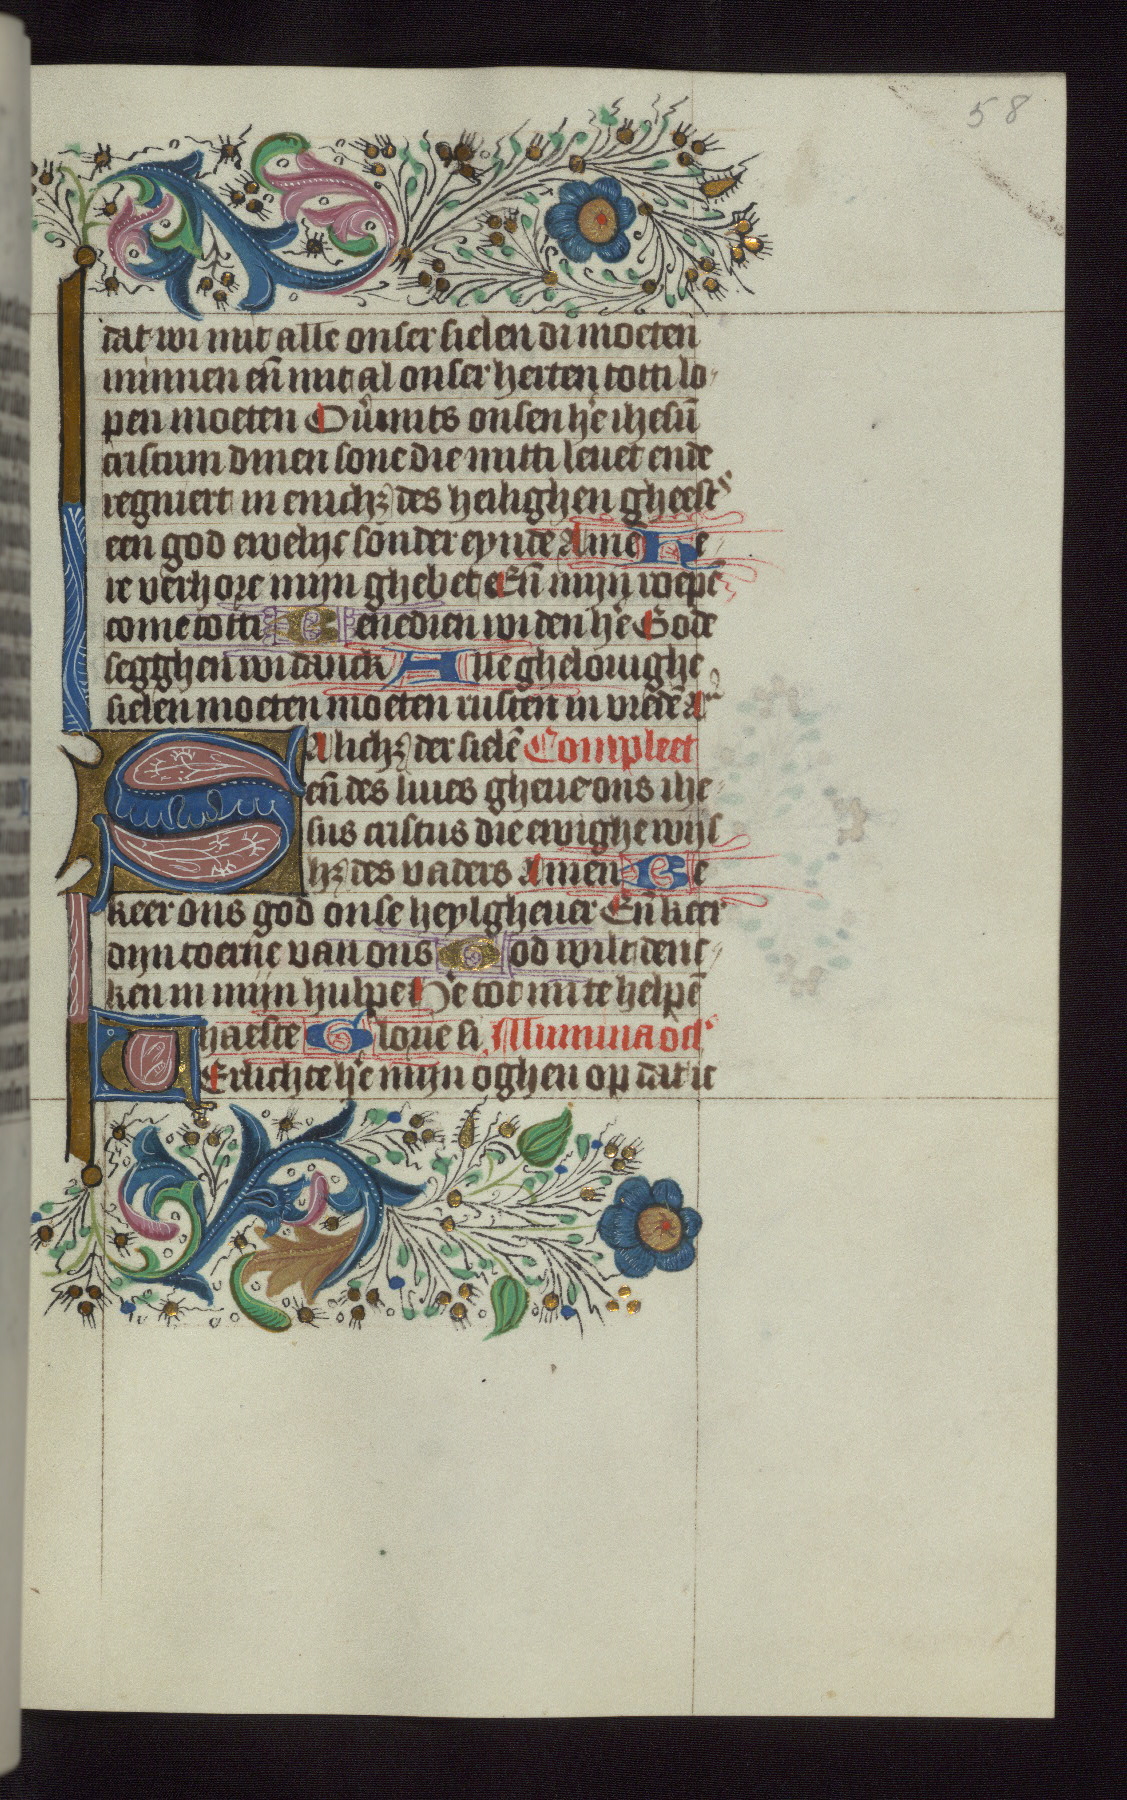 58
dat wi mit alle onser sielen di moeten
minnen en̄ mit al onser herten tot ti lo
pen moeten Ouͤmits onsen he ihesū
cristum dinen sone die mit ti leuet ende
regniert in enichz des heilighen gheests
een god ewelijc sonder eynde Amē He
re verhore mijn ghebet En̄ mijn roepē
come tot ti Benedien wi den he Gode
segghen wi danck Alle ghelouighe
sielen moeten rusten in vreden̄ A
Salichz der sielē Compleet
en̄ des liues gheue ons ihe
sus cristus die ewighe wijs
hz des vaders Amen Be
keer ons god onse heylgheuer En̄ keer
dijn toerne van ons God wilt denc
ken in mijn hulpe He tot mi te helpē
haeste Glorie si Illumina ocl
Erlichte he mijn oghen op dat ic